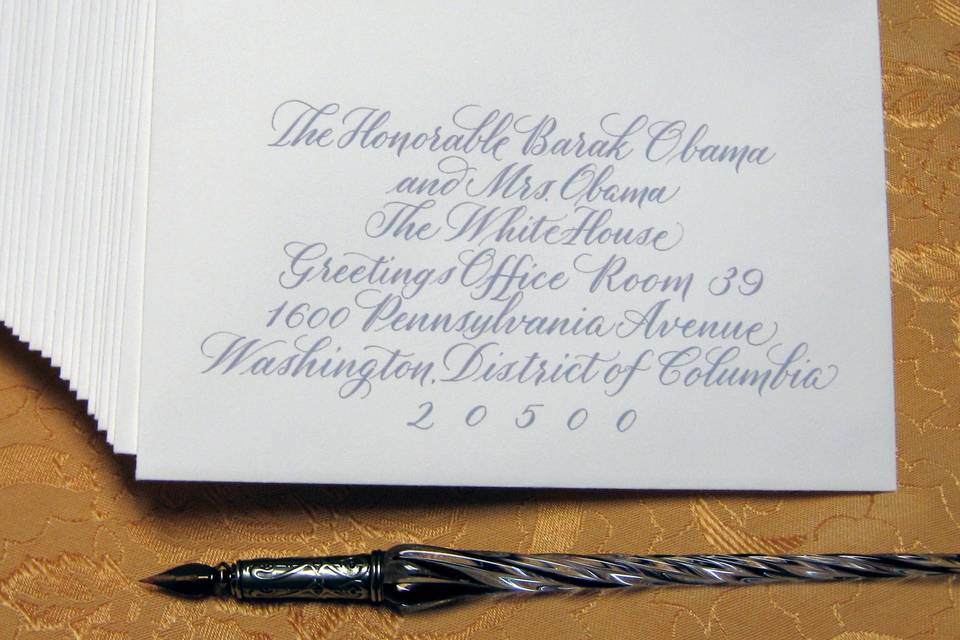 The Honorable Barak Obama
and Mrs. Obama
The White House
Greetings Office Room 39
1600 Pennsylvania Avenue
Washington, District of Columbia
2 0 5 0 0